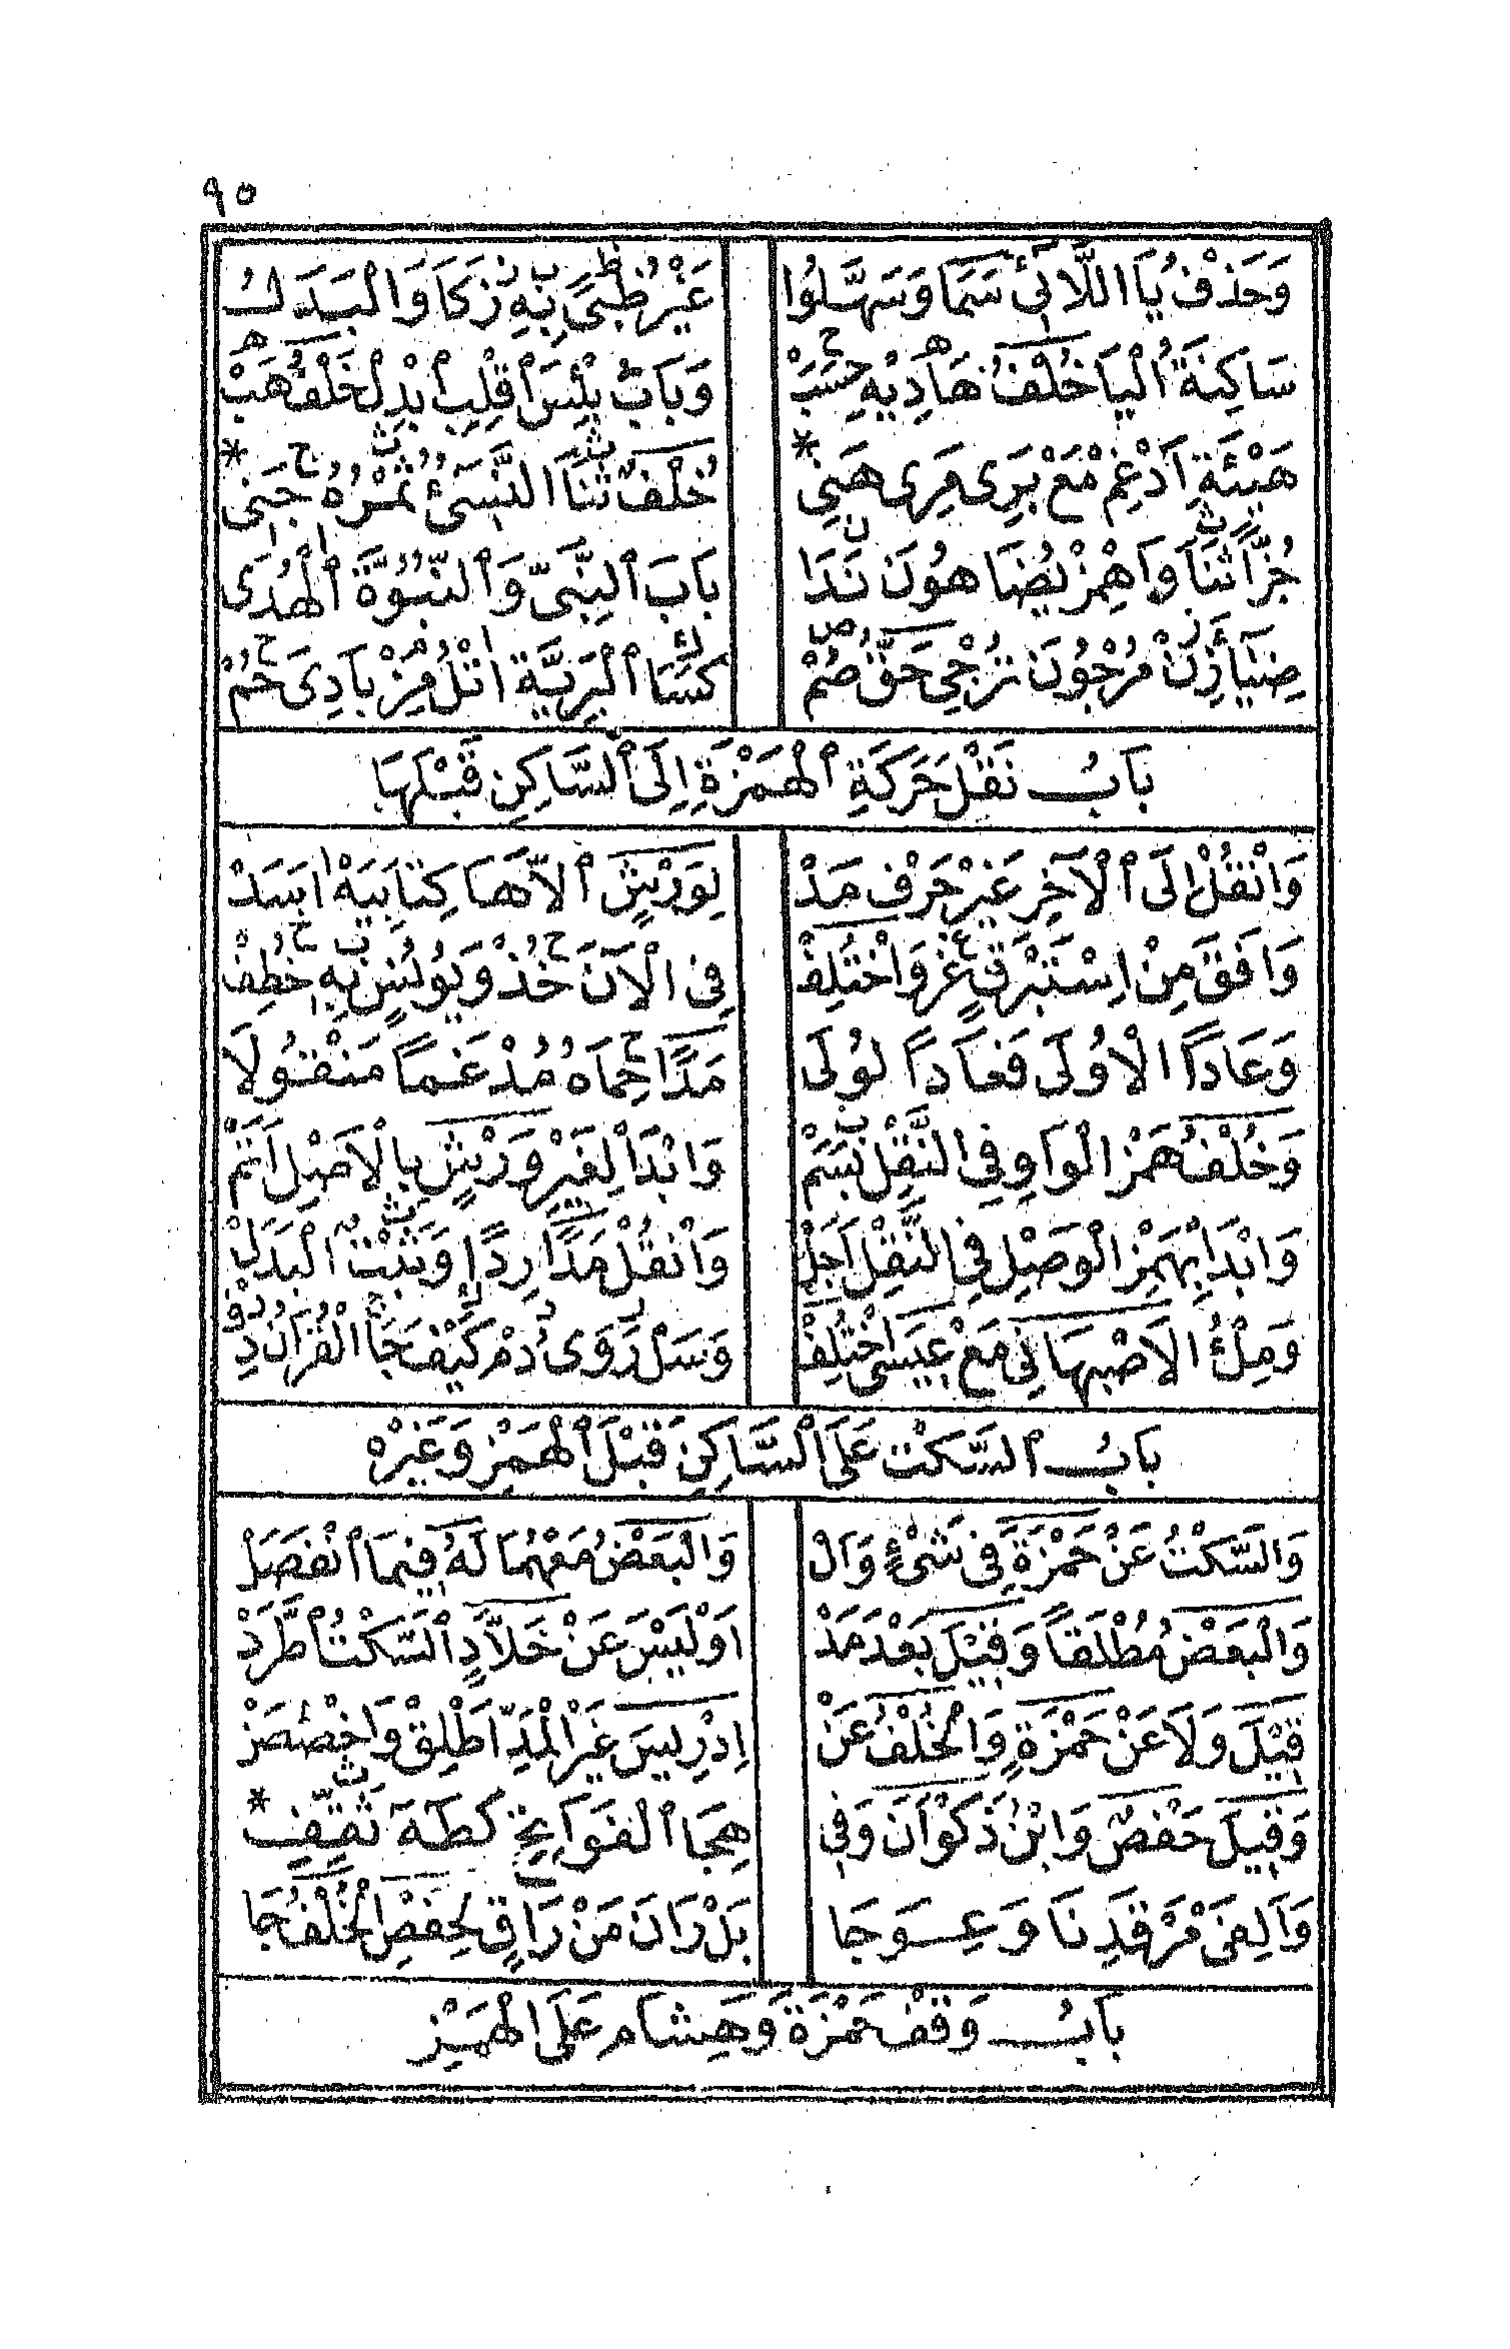 ٩٥
وَحَذْفُ يَا اللَّائِي سَمَا وَسَهَّلُوا غَيْرُ ظُبىً بِهِ زَكَا وَالْبَدَلُ
سَاكِنَةَ الْيَا خُلْفُ هَادِيْهِ حَسَبْ وَبَابُ يَيْئَسُ اقْلِبِ ابْدِلْ خُلْفُ هَبْ
هَيْئَةِ اَدْغِمْ مَعْ بَرِى مَرِى هَنِى * خُلْفٌ ثَنَا النَّسِىْءُ ثَمْرُهُ جَنِى *
جُزًّا ثَنَا وَاهْمِزْ يُضَاهُونَ نَدَا بَابَ النَّبِىِّ وَالنُّبُوَّةِ الْهُدَى
ضِئَاءَ زِنْ مُرْجُونَ تُرْجِى حَقُّ صُمْ كَسَا الْبَرِيَّةِ اتْلُ مِزْ بَادِىَ حُمْ
بَابُ نَقْلِ حَرَكَةِ الْهَمْزَةِ اِلَى السَّاكِنِ قَبْلَهَا
وَانْقُلْ اِلَى الْآخِرِ غَيْرَ حَرْفِ مَدْ لِوَرْشٍ الاَّ هَا كِتَابِيَهْ اَسَدْ
وَافَقَ مِنْ اِسْتَبْرَقٍ غِرْ وَاخْتُلِفْ فِى الْآنَ خُذْ وَيُونُسٍ بِهِ خُطِفْ
وَعَاداً الْاُولَى فَعَاداً لُولَى مَدًّا حِمَاهُ مُدْغَماً مَنْقُولَا
وَخُلْفُ هَمْزِ الْوَاوِ فِى النَّقْلِ بَسَمْ وَابْدَا لِغَيْرِ وَرْشٍ بِالْاَصْلِ اَتَمْ
وَابْدَا بِهَمْزِ الْوَصْلِ فِى النَّقْلِ اَجَلْ وَانْقُلْ مَدًا رِدًا وَثَبْتُ الْبَدَلْ
وَمِلْءُ الْاَصْبَهَانِى مَعْ عِيسَى اخْتُلِفْ وَسَلْ رَوَى دُمْ كَيْفَ جَا الْقُرَانُ دِفْ
بَابُ السَّكْتِ عَلَى السَّاكِنِ قَبْلَ الْهَمْزِ وَغَيْرِهْ
وَالسَّكْتُ عَنْ حَمْزَةَ فِى شَىْءٍ وَالْ وَالْبَعْضُ مَعْهُمَا لَهُ فِيمَا انْفَصَلْ
وَالْبَعْضُ مُطْلَقاً وَقِيْلَ بَعْدَ مَدْ اَوْ لَيْسَ عَنْ خَلاَّدٍ السَّكْتُ اطَّرَدْ
قِيْلَ وَلَا عَنْ حَمْزَةٍ وَالْخُلْفُ عَنْ اِدْرِيسَ غَيْرَ الْمَدِّ اَطْلِقْ وَاخْصُصَنْ
وَقِيلَ حَفْصٌ وَابْنُ ذَكْوَانَ وَفِى هِجَا الْفَوَاتِحِ كَطَهَ ثَقِّفِ *
وَاَلِفَىْ مَرْقَدِنَا وَعِوَجَا بَلْ رَانَ مَنْ رَاقٍ لِحَفْصِ الْخُلْفُ جَا
بَابُ وَقْفِ حَمْزَةَ وَهِشَامٍ عَلَى الْهَمْزِ